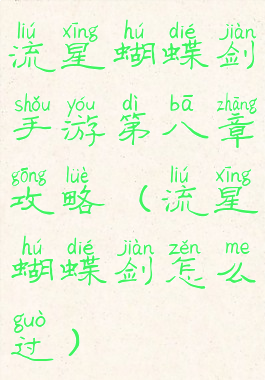 liú xīng hú dié jiàn
流星蝴蝶剑
shǒu yóu dì bā zhāng
手游第八章
gōng lüè liú xīng
攻略（流星
hú dié jiàn zěn me
蝴蝶剑怎么
guò
过）